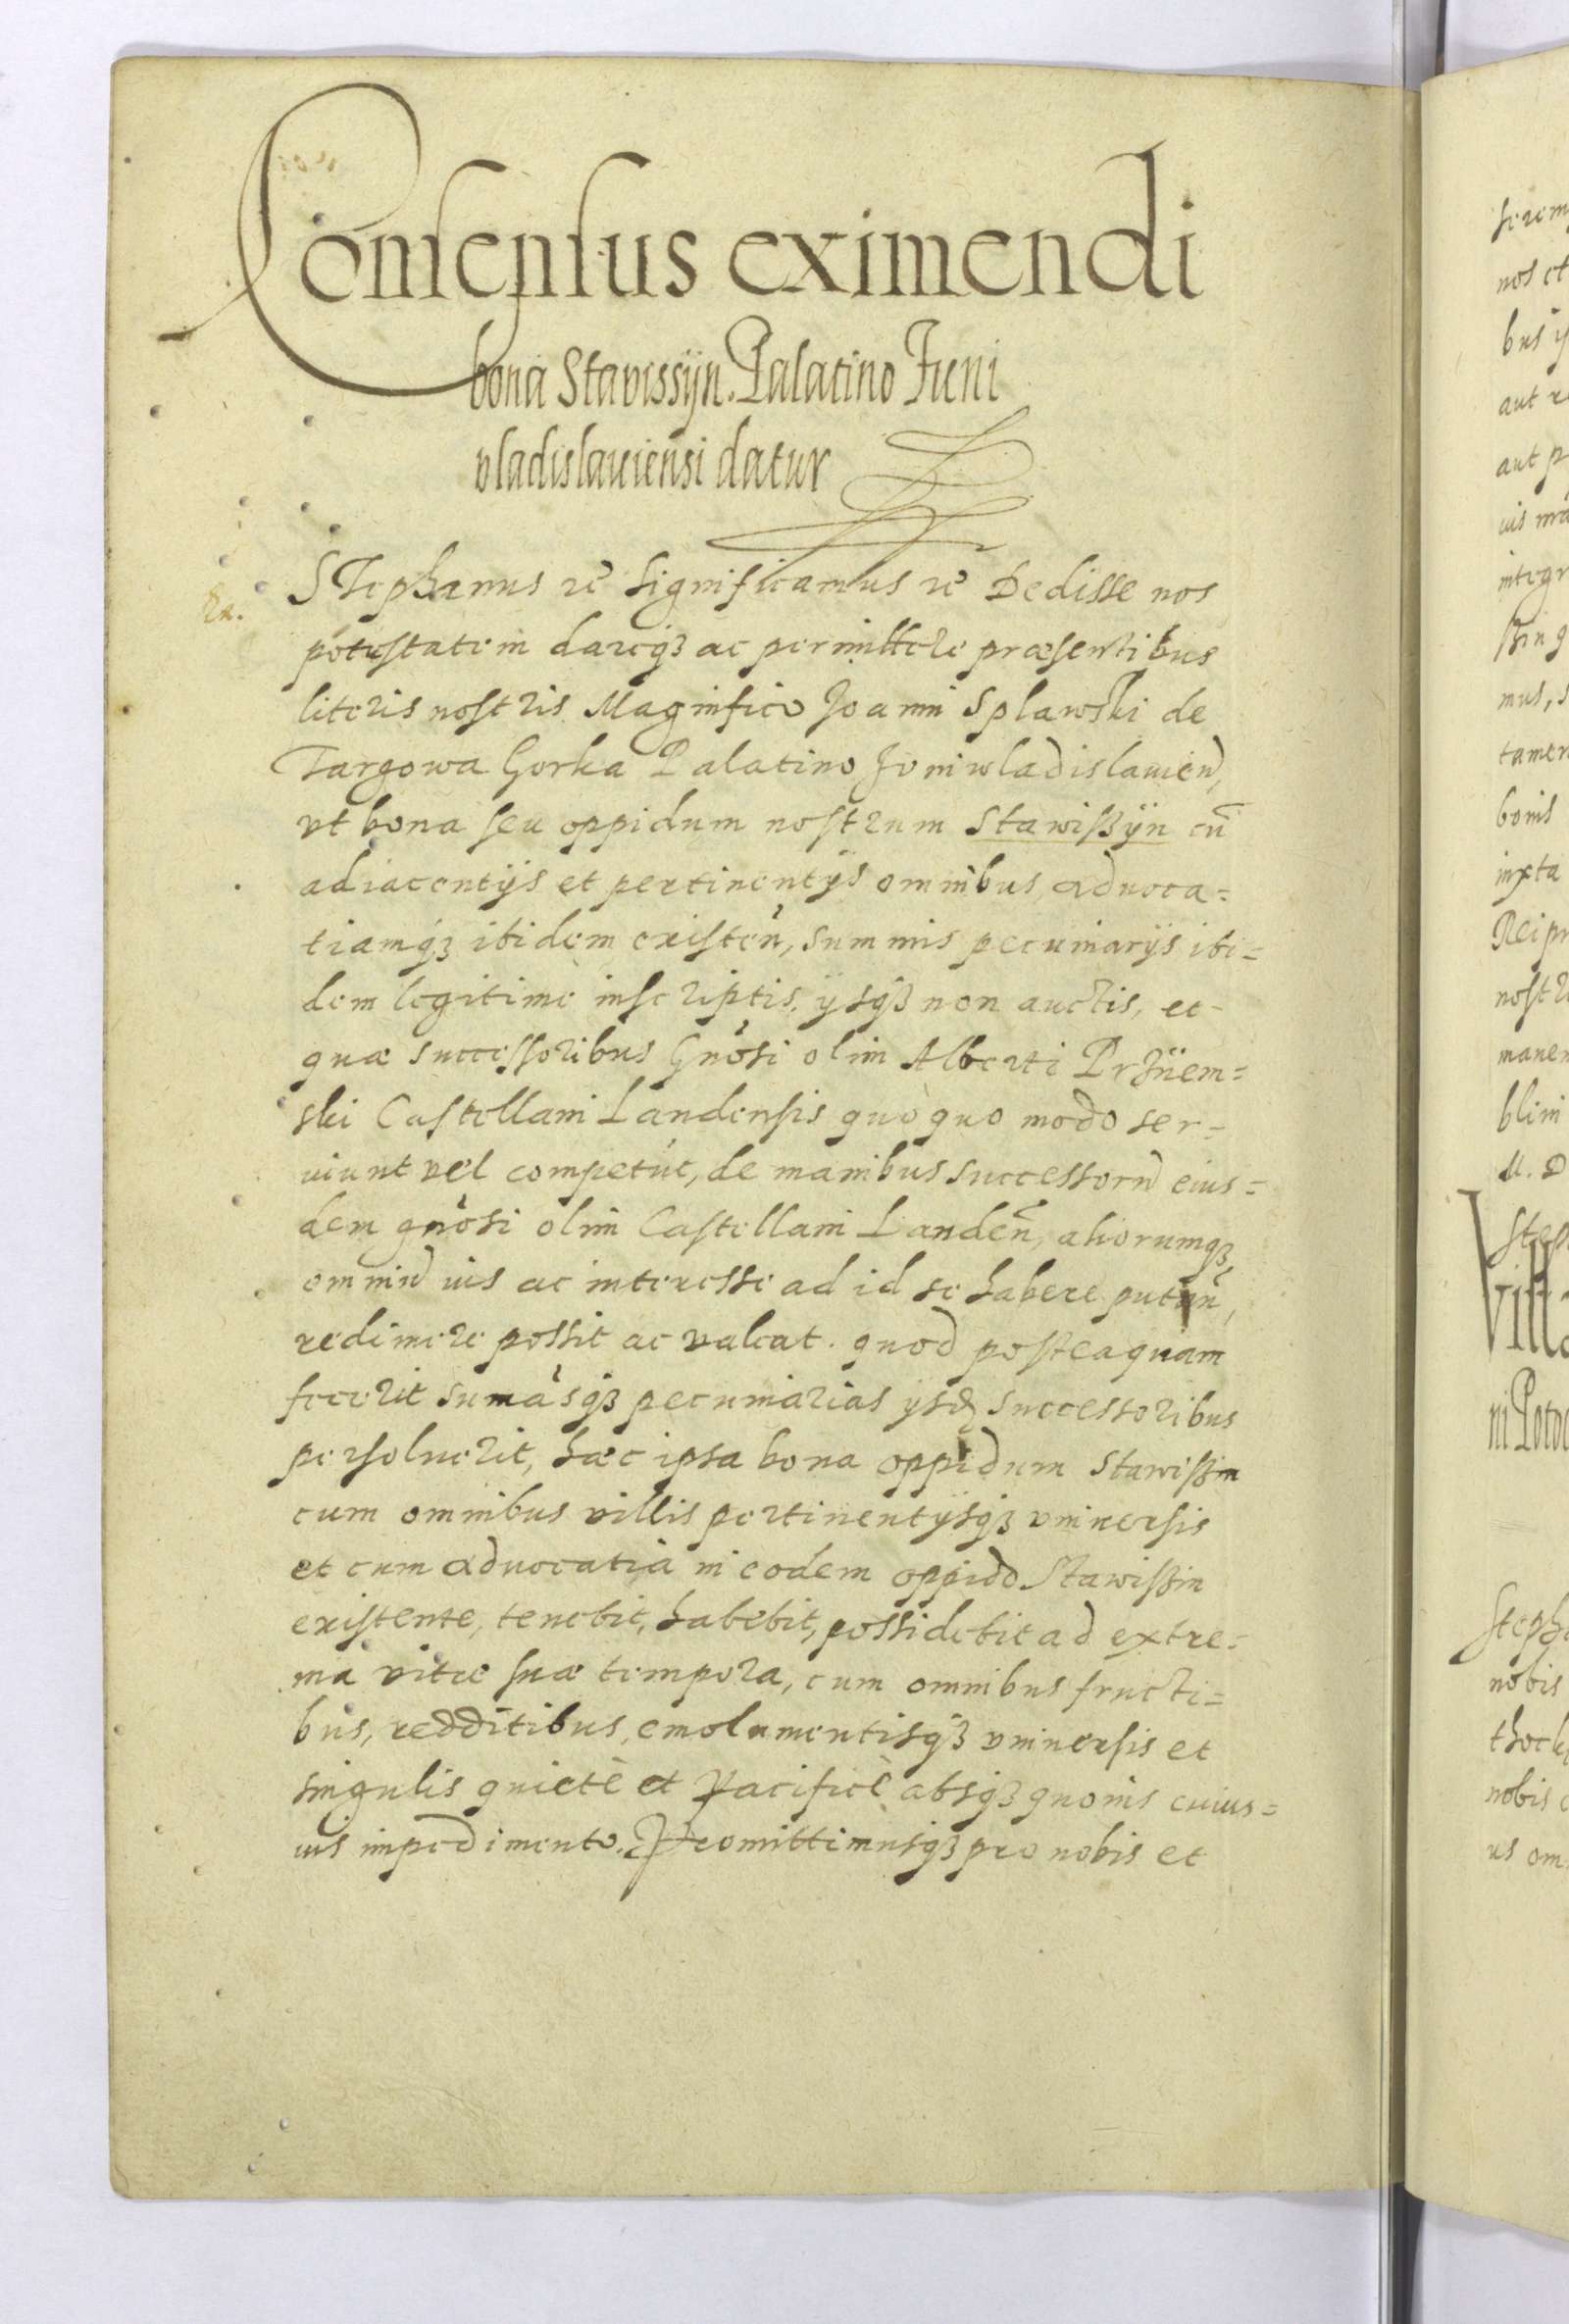 Consensus eximendi
bona Stavissÿn. Palatino Iuni
vladislauiensi datur
Ex.
STephanus rē Significamus rē Dedisse nos
potestatem dareqȝ ac permittere præsentibus
literis nostris Magnifico Joanni Splawski de
Targowa Gorka Palatino Juniwladislauien̄,
vt bona seu oppidum nostrum Stawißÿn cū
adiacentijs et pertinentijs omnibus, aduoca=
tiamqȝ ibidem existen̄, summis pecuniarijs ibi=
dem legitime inscriptis, ijsqȝ non auctis, et
quæ successoribus Gn̄osi olim Alberti Przÿem=
ski Castellani Landensis quoquo modo ser=
uiunt vel competūt, de manibus successorū eius=
dem gn̄osi olim Castellani Landen̄, aliorumqȝ
omniū ius ac interesse ad id se habere putan̄,
redimere possit ac valeat. quod posteaquam
fecerit sumāsqȝ pecuniarias ijsdȝ successoribus
persoluerit, hæc ipsa bona oppidum Stawißin
cum omnibus villis pertinentijsqȝ vniuersis
et cum aduocatia in eodem oppido Stawißin
existente, tenebit, habebit, possidebit ad extre=
ma vitæ suæ tempora, cum omnibus fructi=
bus, redditibus, emolumentisqȝ vniuersis et
singulis quietè et Pacificè absqȝ quouis cuius=
uis impedimento. Promittimusqȝ pro nobis et
nos et
aut
bonis
nostr
manen
blim
Steph
Vill
nobis
nobis
us om